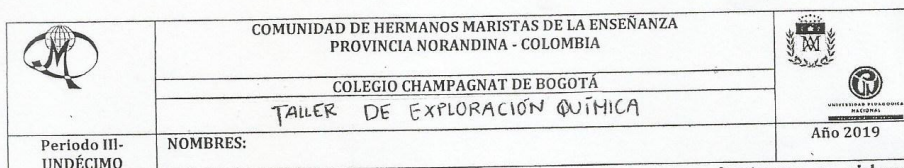 COMUNIDAD DE HERMANOS MARISTAS DE LA ENSEÑANZA
PROVINCIA NORANDINA - COLOMBIA
COLEGIO CHAMPAGNAT DE BOGOTÁ
TALLER DE EXPLORACIÓN QUÍMICA
UNIVERSIDAD PEDAGOGICA
NACIONAL
Periodo III-
UNDÉCIMO
NOMBRES:
Año 2019